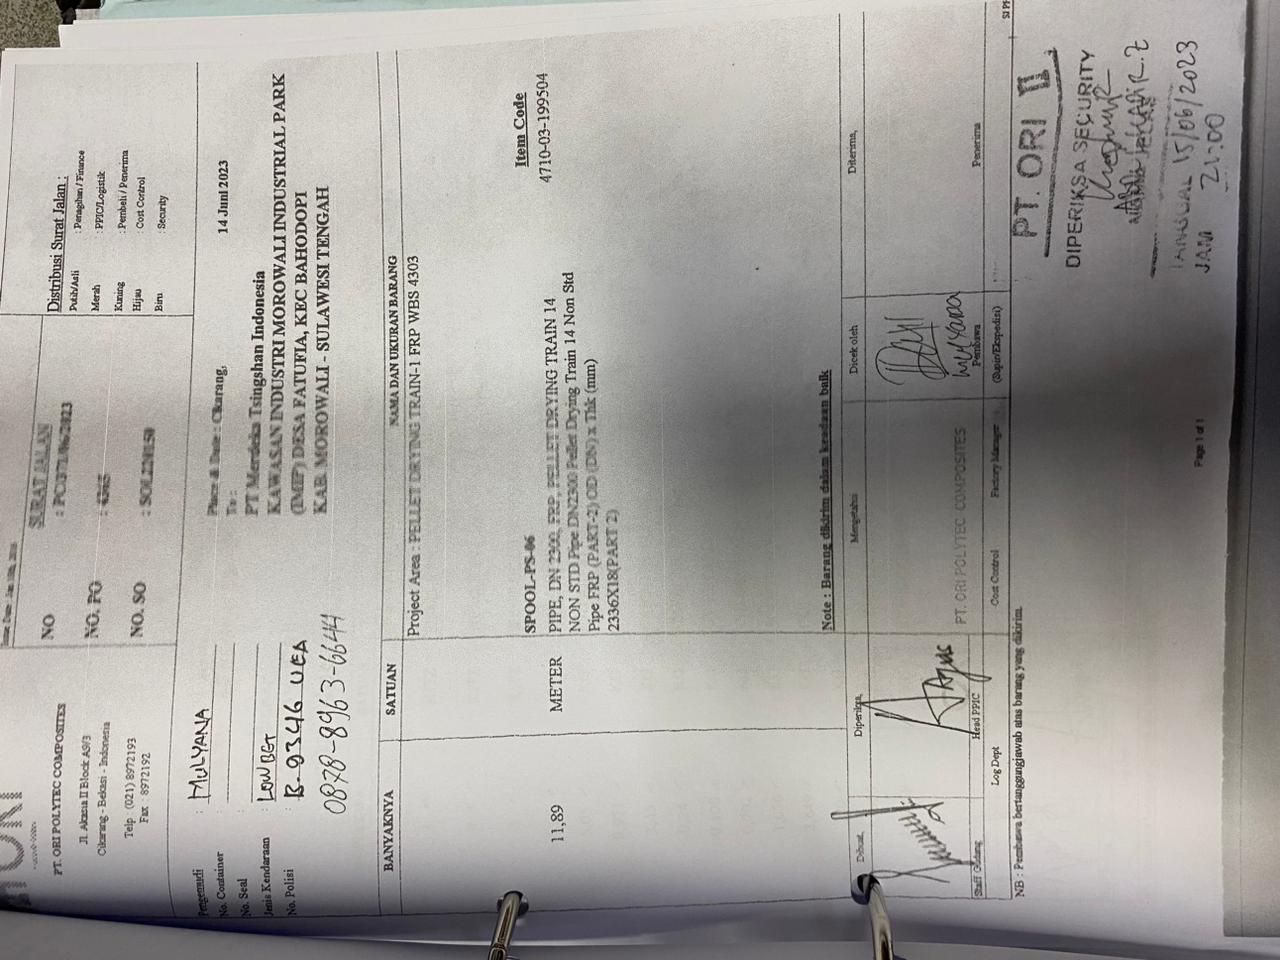 PT. ORI POLYTEC COMPOSITES
Jl. Akasia II Block A9/3
Cikarang - Bekasi - Indonesia
Telp : (021) 8972193
Fax : 8972192
SURAT JALAN
NO
NO. PO
NO. SO
Distribusi Surat Jalan :
Putih/Asli : Penagihan / Finance
Merah : PPIC/Logistik
Kuning : Pembeli / Penerima
Hijau : Cost Control
Biru : Security
Pengemudi : MULYANA
No. Container :
No. Seal :
Jenis Kendaraan : LOWBET
No. Polisi : B-9346 UEA
0878-8963-6644
Place & Date : Cikarang, 14 Juni 2023
To :
PT Merdeka Tsingshan Indonesia
KAWASAN INDUSTRI MOROWALI INDUSTRIAL PARK
(IMIP) DESA FATUFIA, KEC BAHODOPI
KAB. MOROWALI - SULAWESI TENGAH
BANYAKNYA SATUAN NAMA DAN UKURAN BARANG
Project Area : PELLET DRYING TRAIN-1 FRP WBS 4303
Item Code
SPOOL-PS-06
11,89 METER PIPE, DN 2300, FRP, PELLET DRYING TRAIN 14 4710-03-199504
NON STD Pipe DN2300 Pellet Drying Train 14 Non Std
Pipe FRP (PART-2) OD (DN) x Thk (mm)
2336X18(PART 2)
Note : Barang dikirim dalam keadaan baik
Dibuat, Diperiksa, Mengetahui Dicek oleh Diterima,
Agus
Mulyana
PT. ORI POLYTEC COMPOSITES
Staff Gudang Head PPIC Pembawa Penerima
Log Dept Cost Control Factory Manager (Supir/Ekspedisi)
NB : Pembawa bertanggungjawab atas barang yang dikirim.
PT. ORI II
DIPERIKSA SECURITY
TANGGAL 15/06/2023
JAM 21:00
Page 1 of 1